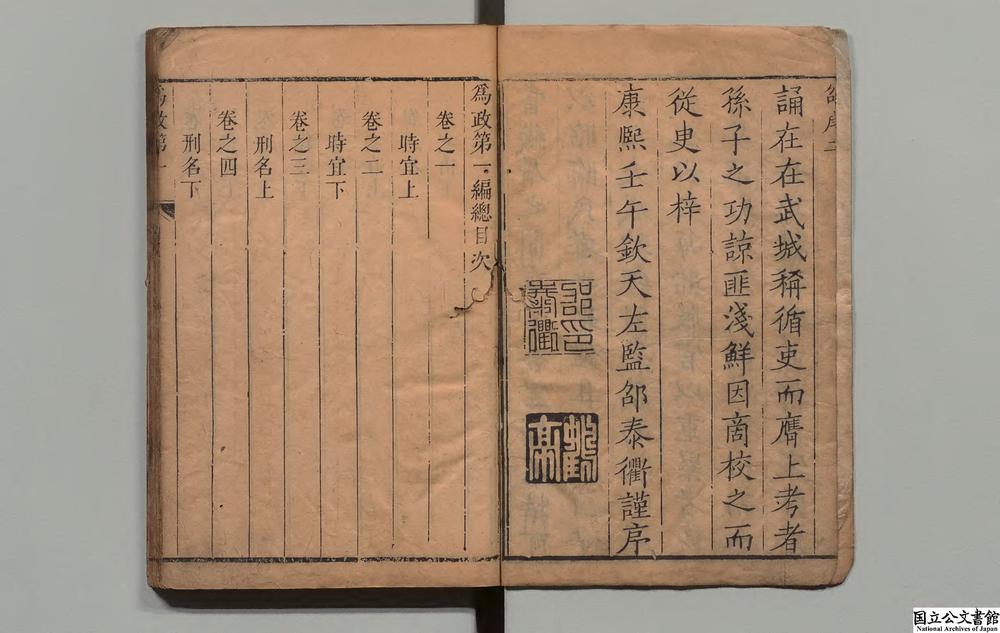 邵序二
誦在在武城稱循吏而膺上考者
孫子之功諒匪淺鮮因商校之而
從史以梓
康熙壬午欽天左監邵泰衢謹序
邵印
泰衢
爲政第一編總目次
卷之一
時宜上
卷之二
時宜下
卷之三
刑名上
卷之四
刑名下
爲政第一
国立公文書館
National Archives of Japan